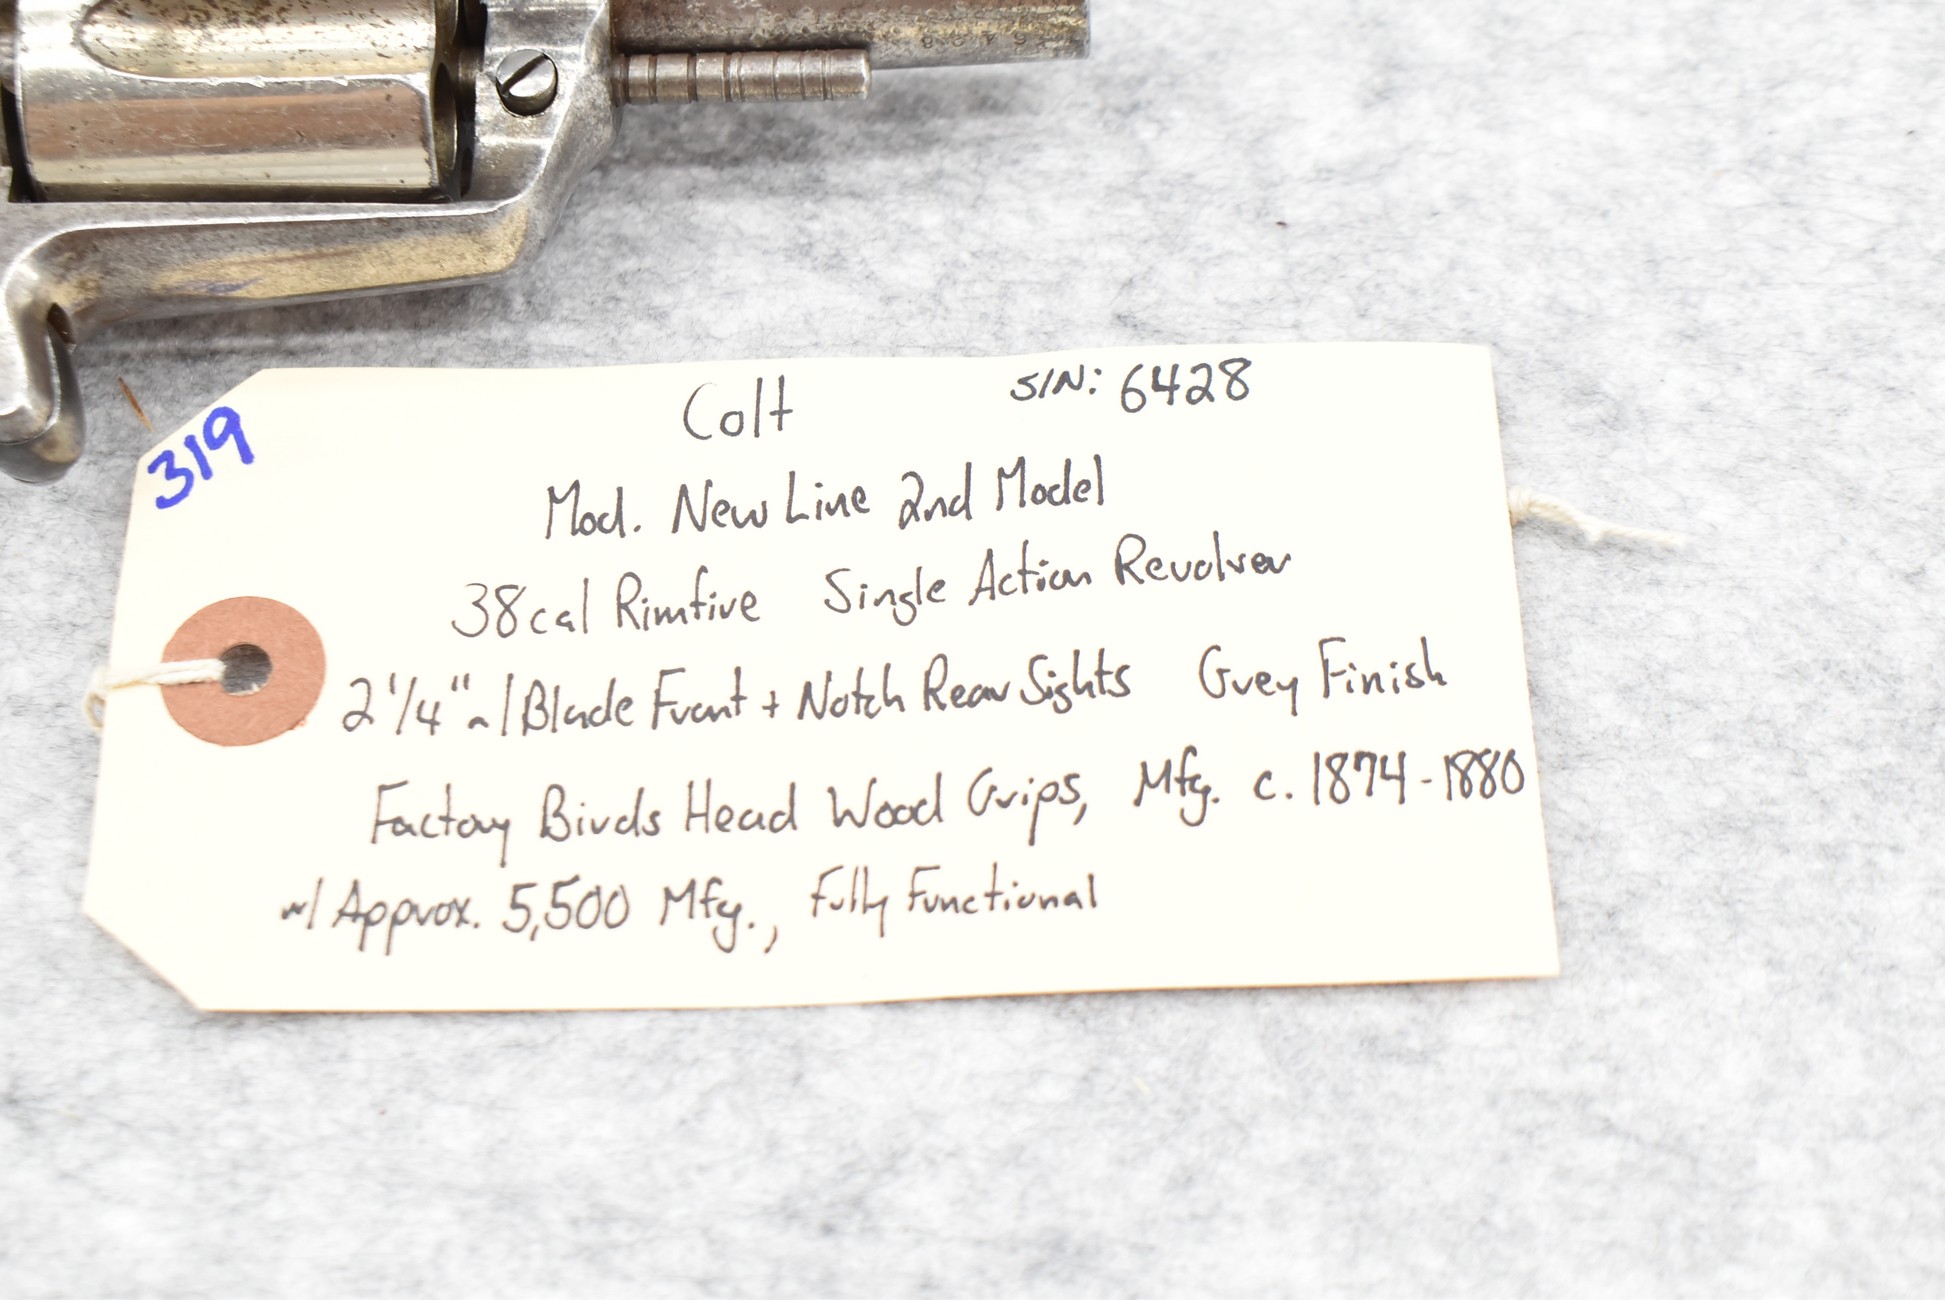 6428
319
Colt S/N: 6428
Mod. New Line 2nd Model
38cal Rimfire Single Action Revolver
2 1/4" w/ Blade Front + Notch Rear Sights Grey Finish
Factory Birds Head Wood Grips, Mfg. c. 1874-1880
w/ Approx. 5,500 Mfg., Fully Functional